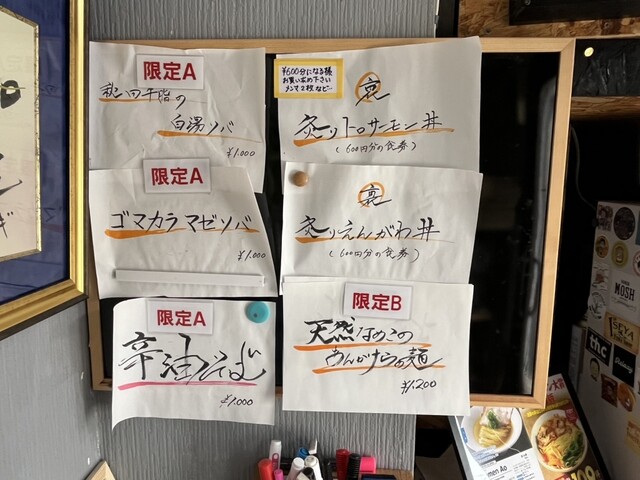 限定A
秋田牛脂の
白湯ソバ
¥1,000
¥600分になる様
お買い求め下さい
メンマ2枚など…
裏
炙りトロサーモン丼
(600円分の食券)
限定A
ゴマカラマゼソバ
¥1,000
裏
炙りえんがわ丼
(600円分の食券)
限定A
辛油そば
¥1,000
限定B
天然なめこの
あんかけらぁ麺
¥1,200
MOSH
SEYA
thc
men Ao